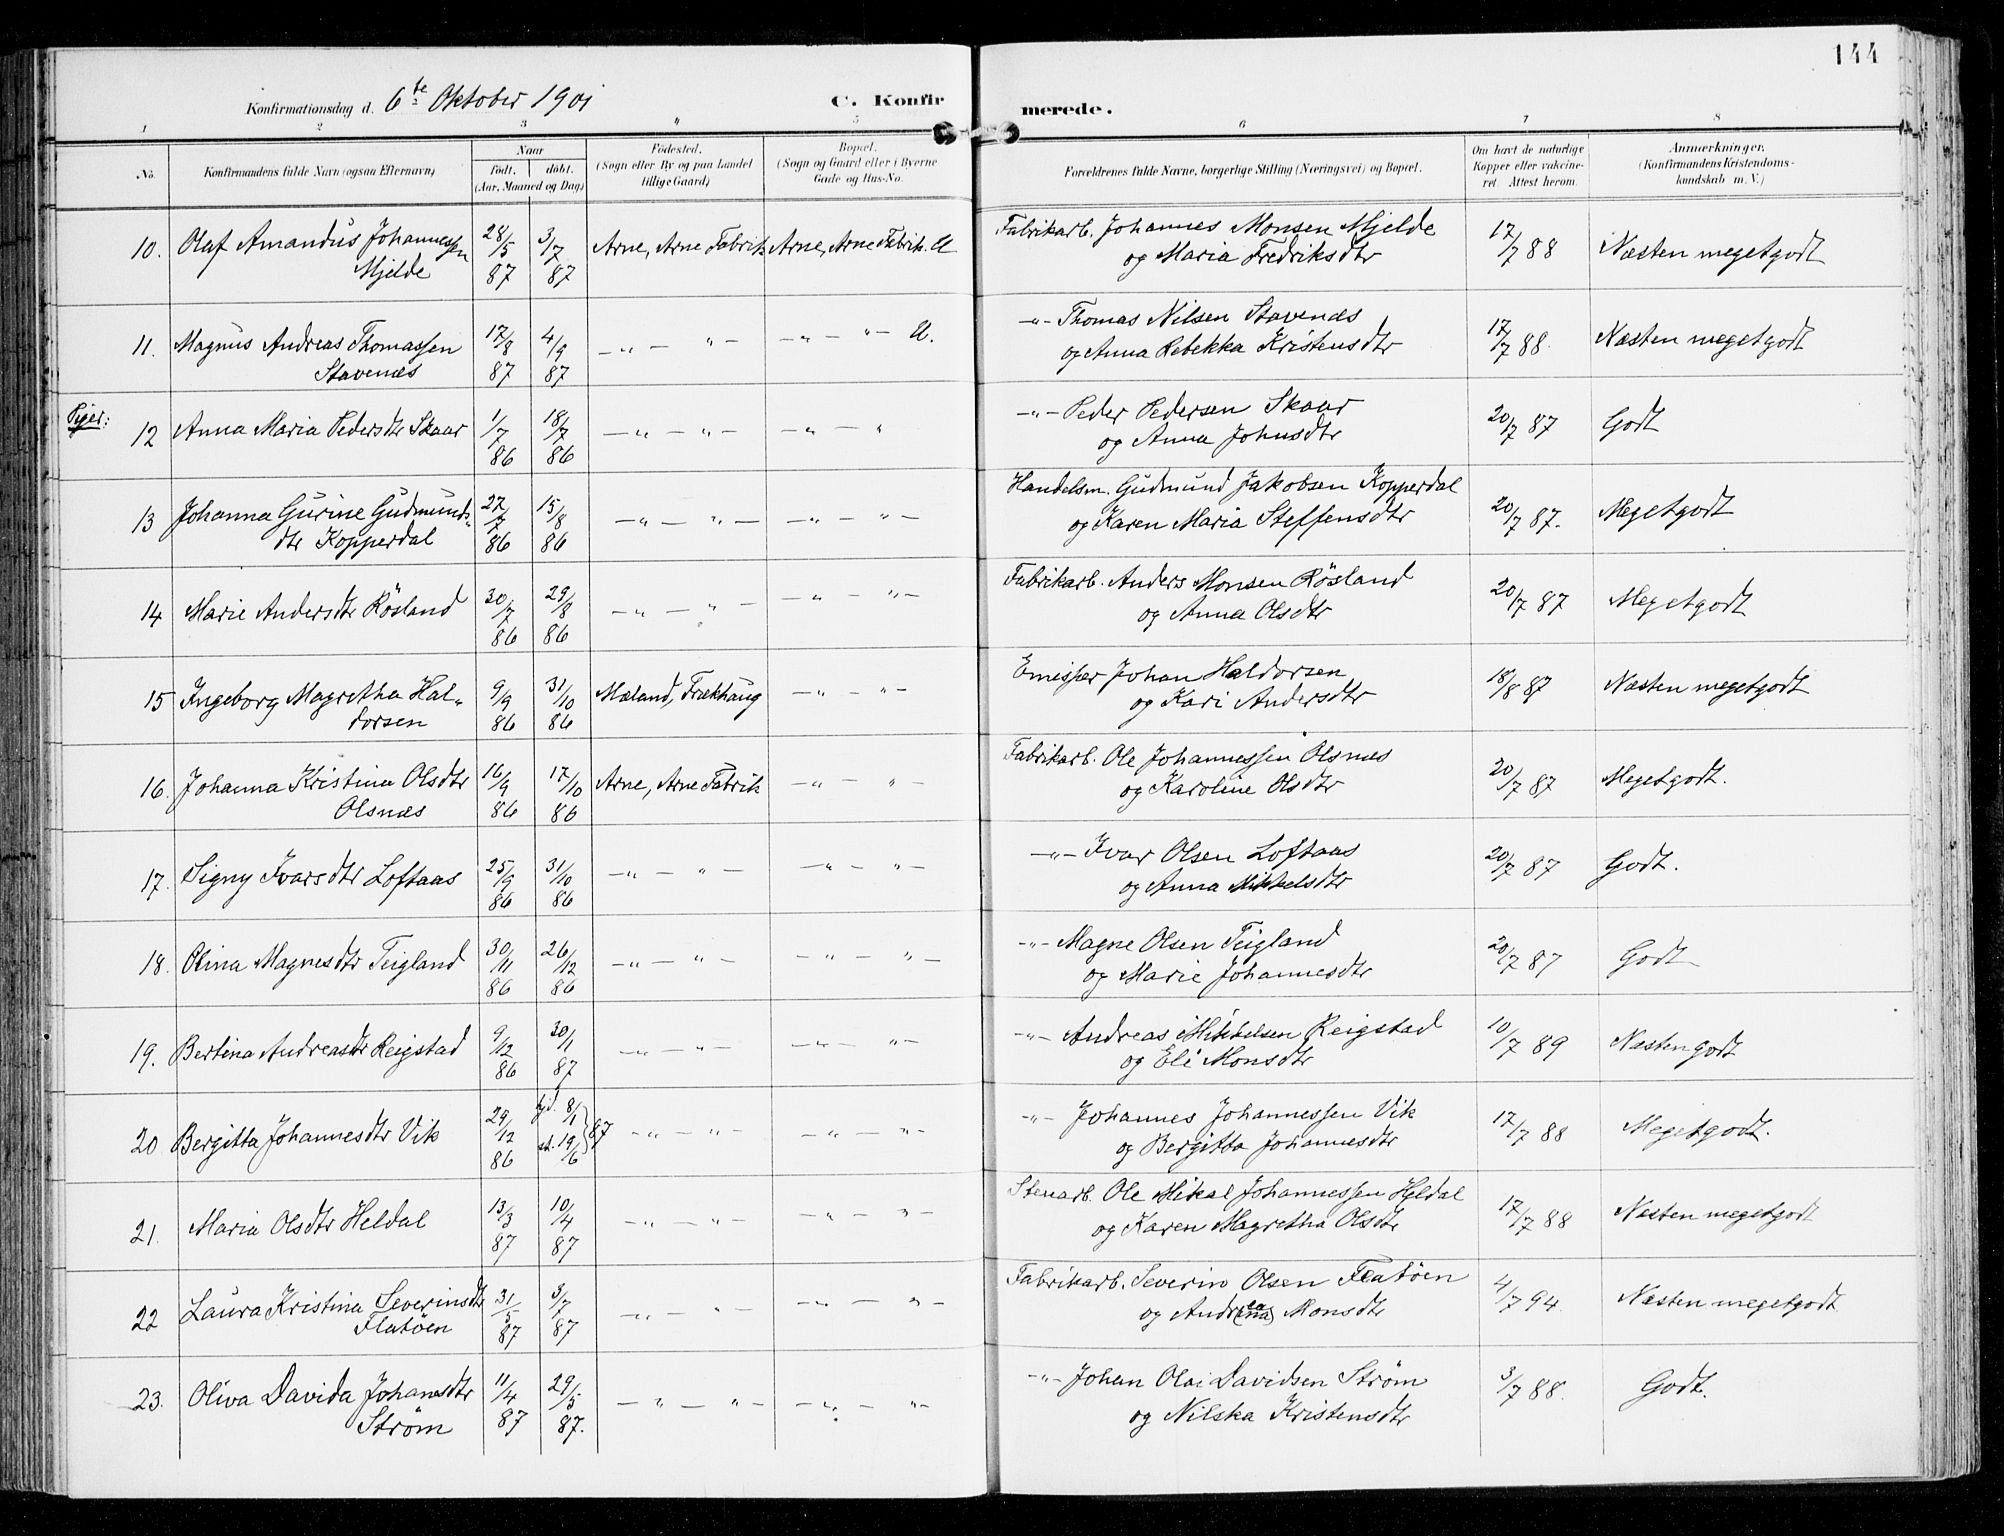 144
Konfirmationsdag d. 6te Oktober 1901 C. Konfirmerede.
1 2 3 4 5 6 7 8
No. Konfirmandens fulde Navn (ogsaa Efternavn) Naar født. døbt. (Aar, Maaned og Dag) Fødested. (Sogn eller By og paa Landet tillige Gaard) Bopæl. (Sogn og Gaard eller i Byerne Gade og Hus-No. Forældrenes fulde Navne, borgerlige Stilling (Næringsvei) og Bopæl. Om havt de naturlige Kopper eller vakcineret. Attest herom. Anmærkninger. (Konfirmandens Kristendomskundskab m. V.)
10. Olaf Amandus Johannessen Mjelde 28/5 87 3/7 87 Arne, Arne Fabrik Arne, Arne Fabrik. U Fabrikarb. Johannes Monsen Mjelde
og Maria Fredriksdtr 17/7 88 Næsten megetgodt
11. Magnus Andreas Thomassen Stavenæs 17/8 87 4/9 87 -"- "- -"- "- U. -"- Thomas Nilsen Stavenæs
og Anna Rebekka Kristensdtr 17/7 88 Næsten megetgodt
Piger:
12 Anna Maria Pedersdtr Skaar 1/7 86 18/7 86 -"- "- -"- " -"- Peder Pedersen Skaar
og Anna Johnsdtr 20/7 87 Godt
13 Johanna Gurine Gudmundsdtr Kopperdal 27/7 86 15/8 86 -"- "- -"- "- Handelsm. Gudmund Jakobsen Kopperdal
og Karen Maria Steffensdtr 20/7 87. Megetgodt
14 Marie Andersdtr Røsland 30/7 86 29/8 86 -"- "- -"- "- Fabrikarb. Anders Monsen Røsland
og Anna Olsdtr 20/7 87 Megetgodt
15 Ingeborg Magretha Haldorsen 9/9 86 31/10 86 Mæland, Frækhaug -"- "- Emissær Johan Haldorsen
og Kari Andersdtr 18/8 87 Næsten megetgodt
16. Johanna Kristina Olsdtr Olsnæs 16/9 86 17/10 86 Arne, Arne Fabrik -"- "- Fabrikarb. Ole Johannessen Olsnæs
og Karoline Olsdtr 20/7 87 Megetgodt.
17. Signy Ivarsdtr Loftaas 25/9 86 31/10 86 -"- "- -"- "- -"- Ivar Olsen Loftaas
og Anna Mikkelsdtr 20/7 87 Godt.
18. Olina Magnesdtr Teigland 30/11 86 26/12 86 -"- "- -"- "- -"- Magne Olsen Teigland
og Marie Johannesdtr 20/7 87 Godt
19. Bertina Andreasdtr Reigstad 9/12 86 30/1 87 -"- "- -"- "- -"- Andreas Mikkelsen Reigstad
og Eli Monsdtr 10/7 89 Næsten godt
20 Bergitta Johannesdtr Vik 29/12 86 hjd. 8/1 st. 19/6 } 87 -"- "- -"- "- -"- Johannes Johannessen Vik
og Bergitta Johannesdtr 17/7 88 Megetgodt.
21. Maria Olsdtr Heldal 13/3 87 10/4 87 -"- "- -"- "- Stenarb. Ole Mikal Johannessen Heldal
og Karen Magretha Olsdtr 17/7 88 Næsten megetgodt
22 Laura Kristina Severinsdtr Flatøen 31/5 87 3/7 87 -"- "- -"- "- Fabrikarb. Severin Olsen Flatøen
og Andrea (ina) Monsdtr 4/7 94. Næsten megetgodt
23. Oliva Davida Johansdtr Strøm 11/4 87 29/5 87. -"- "- -"- "- -"- Johan Olai Davidsen Strøm
og Nilska Kristensdtr 3/7 88. Godt.